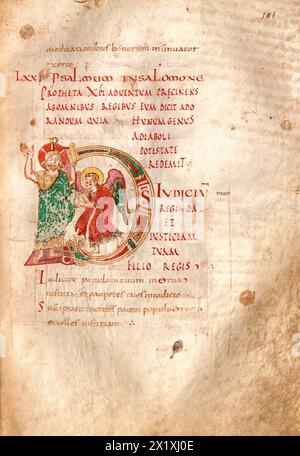 101
modicationibus bonorum insinuator
LXXI PSALMUM IN SALOMONE
PROPHETA XPI ADVENTUM PRECINENS
ABOMNIBUS REGIBUS EUM DICIT ADO
RANDUM QUIA HUMUM GENUS
ADIABOLI
POTESTATE
REDEMIT
DS IUDICIŪ
REGI DA
ET
IUSTICIAM
TUAM
FILIO REGIS
Iudicare populum tuum in tua
iusticia et pauperes tuos in iudicio
Suscipiant montes pacem populo tuo
et colles iusticiam
alamy
Image ID: 2X1XJ0E
www.alamy.com